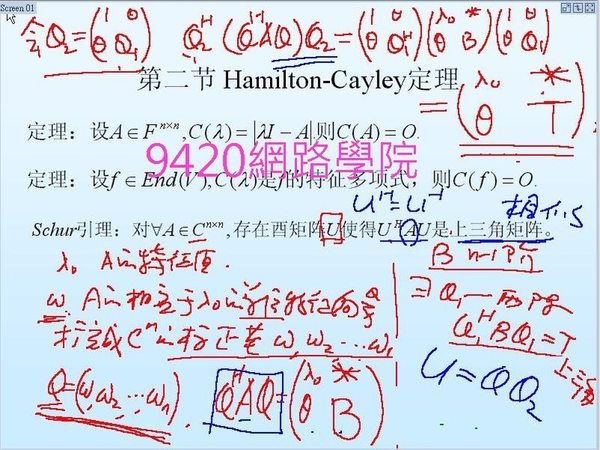 Screen 01
令 Q₂ = (1 θ; θ Q₁) Q₂ᴴ (QᴴAQ) Q₂ = (1 θ; θ Q₁ᴴ) (λ₀ *; θ B) (1 θ; θ Q₁)
第二节 Hamilton-Cayley定理
= (λ₀ *; θ T)
定理：设A∈Fⁿˣⁿ,C(λ)=|λI−A|,则C(A)=O.
9420網路學院
定理：设f∈End(V),C(λ)是f的特征多项式，则C(f)=O.
Uᴴ=U⁻¹ 相似
Schur引理：对∀A∈Cⁿˣⁿ,存在酉矩阵U使得UᴴAU是上三角矩阵。
λ₀ A的特征值. B n-1阶
ω₁ A的相应于λ₀的单位特征向量 ∃Q₁—酉阵
扩充成Cⁿ的标正基 ω₁ω₂…ωₙ Q₁ᴴBQ₁=T
上三角
Q=(ω₁ω₂…ωₙ) QᴴAQ=(λ₀ *; θ B) U=QQ₂